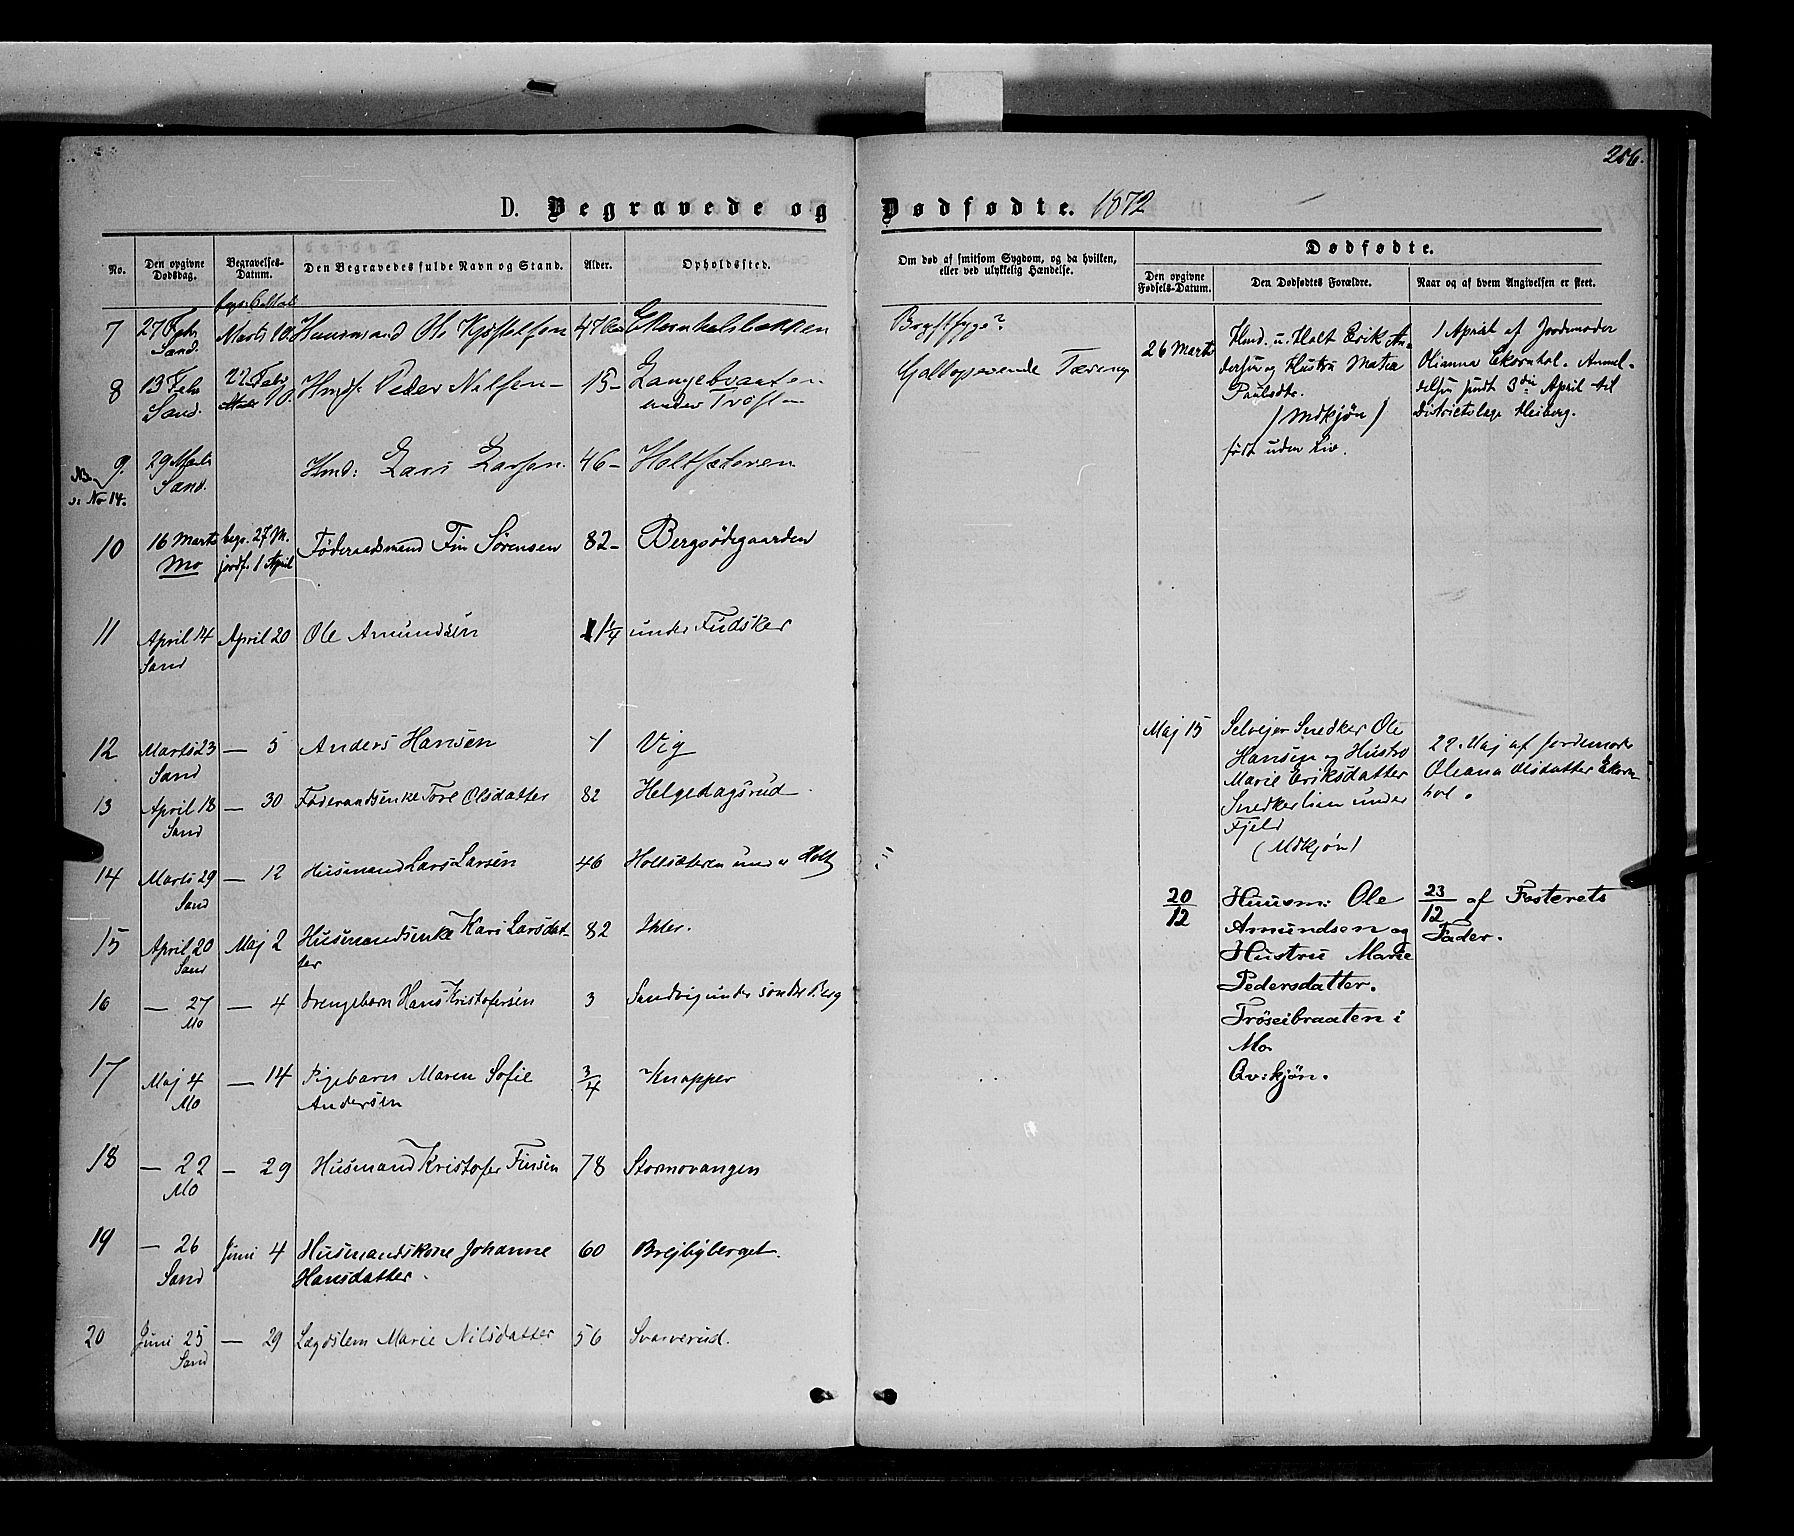 256.
D. Begravede og Dødfødte. 1872
No.
Den opgivne Dødsdag.
Begravelses-Datum.
Den Begravedes fulde Navn og Stand.
Alder.
Opholdssted.
Om død af smitsom Sygdom, og da hvilken, eller ved ulykkelig Hændelse.
Dødfødte.
Den opgivne Fødsels-Datum.
Den Dødfødtes Forældre.
Naar og af hvem Angivelsen er skeet.
7 27 Febr Sand. Marts 10. Huusmand Ole 47 Ekornholsbakken Brystsyge?
8 13 Febr Sand. 22 Febr Hmds. Peder Nilsen 15 Langebraaten under Galopperende Tæring
9. 29 Marts Sand. Hmd: Lars Larsen. 46 Holtsæteren
NB v. No 14.
10 16 Marts Mo begr. 27 M. jordf. 1 April Føderaadsmand Fin Sørensen 82 Bergsødegaarden
11 April 14 Sand April 20 Ole Amundsen 1 1/4 under Fudsker
12 Marts 23 Sand — 5 Anders Hansen 1 Vig
13 April 18 Sand — 30 Føderaadsenke Tore Olsdatter 82 Helgedagsrud
14 Marts 29 Sand — 12 Husmand Lars Larsen 46 Holtsæteren under Holt
15 April 20 Sand Maj 2 Husmandsenke Kari Larsdatter 82 Ihler.
16 — 27 Mo — 4 Drengebarn Hans Kristofersen 3 Sandvig under søndre Berg
17 Maj 4 Mo — 14 Pigebarn Maren Sofie Andersen 3/4 Knapper
18 — 22 Mo — 29 Husmand Kristofer Finsen 78 Stormovangen
19 — 26 Sand Juni 4 Husmandskone Johanne Hansdatter. 60 Brejbyberget.
20 Juni 25 Sand — 29 Lægdslem Marie Nilsdatter 56 Svarverud.
26 Marts
Hmd. u. Holt Erik An-
dersen og Hustru Mathea
Paulsdtr.
(Mdkjøn)
født uden Liv.
1 April af Jordemoder
Olianna Ekornhol. Anmel-
delsen sendt 3die April til
Districtslæge Heiberg.
Maj 15
Selvejer Snedker Ole
Hansen og Hustro
Marie Eriksdatter
Snedkerlien under
Fjeld
(Mdkjøn)
22. Maj af Jordemoder
Oleana Olsdatter Ekorn-
hol.
20/12
Huusm: Ole
Amundsen og
Hustru Marie
Pedersdatter.
Trøseibraaten i
Mo.
Qv:kjøn.
23/12 af Fosterets
Fader.